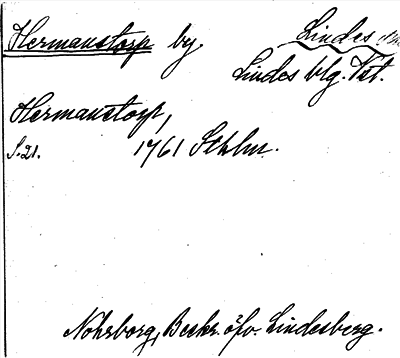 Hermanstorp by. Lindes
Lindes blg. Vst.
Hermanstorp,
S. 21. 1761 Sthlm.
Nohrborg, Beskr. öfv. Lindesberg.